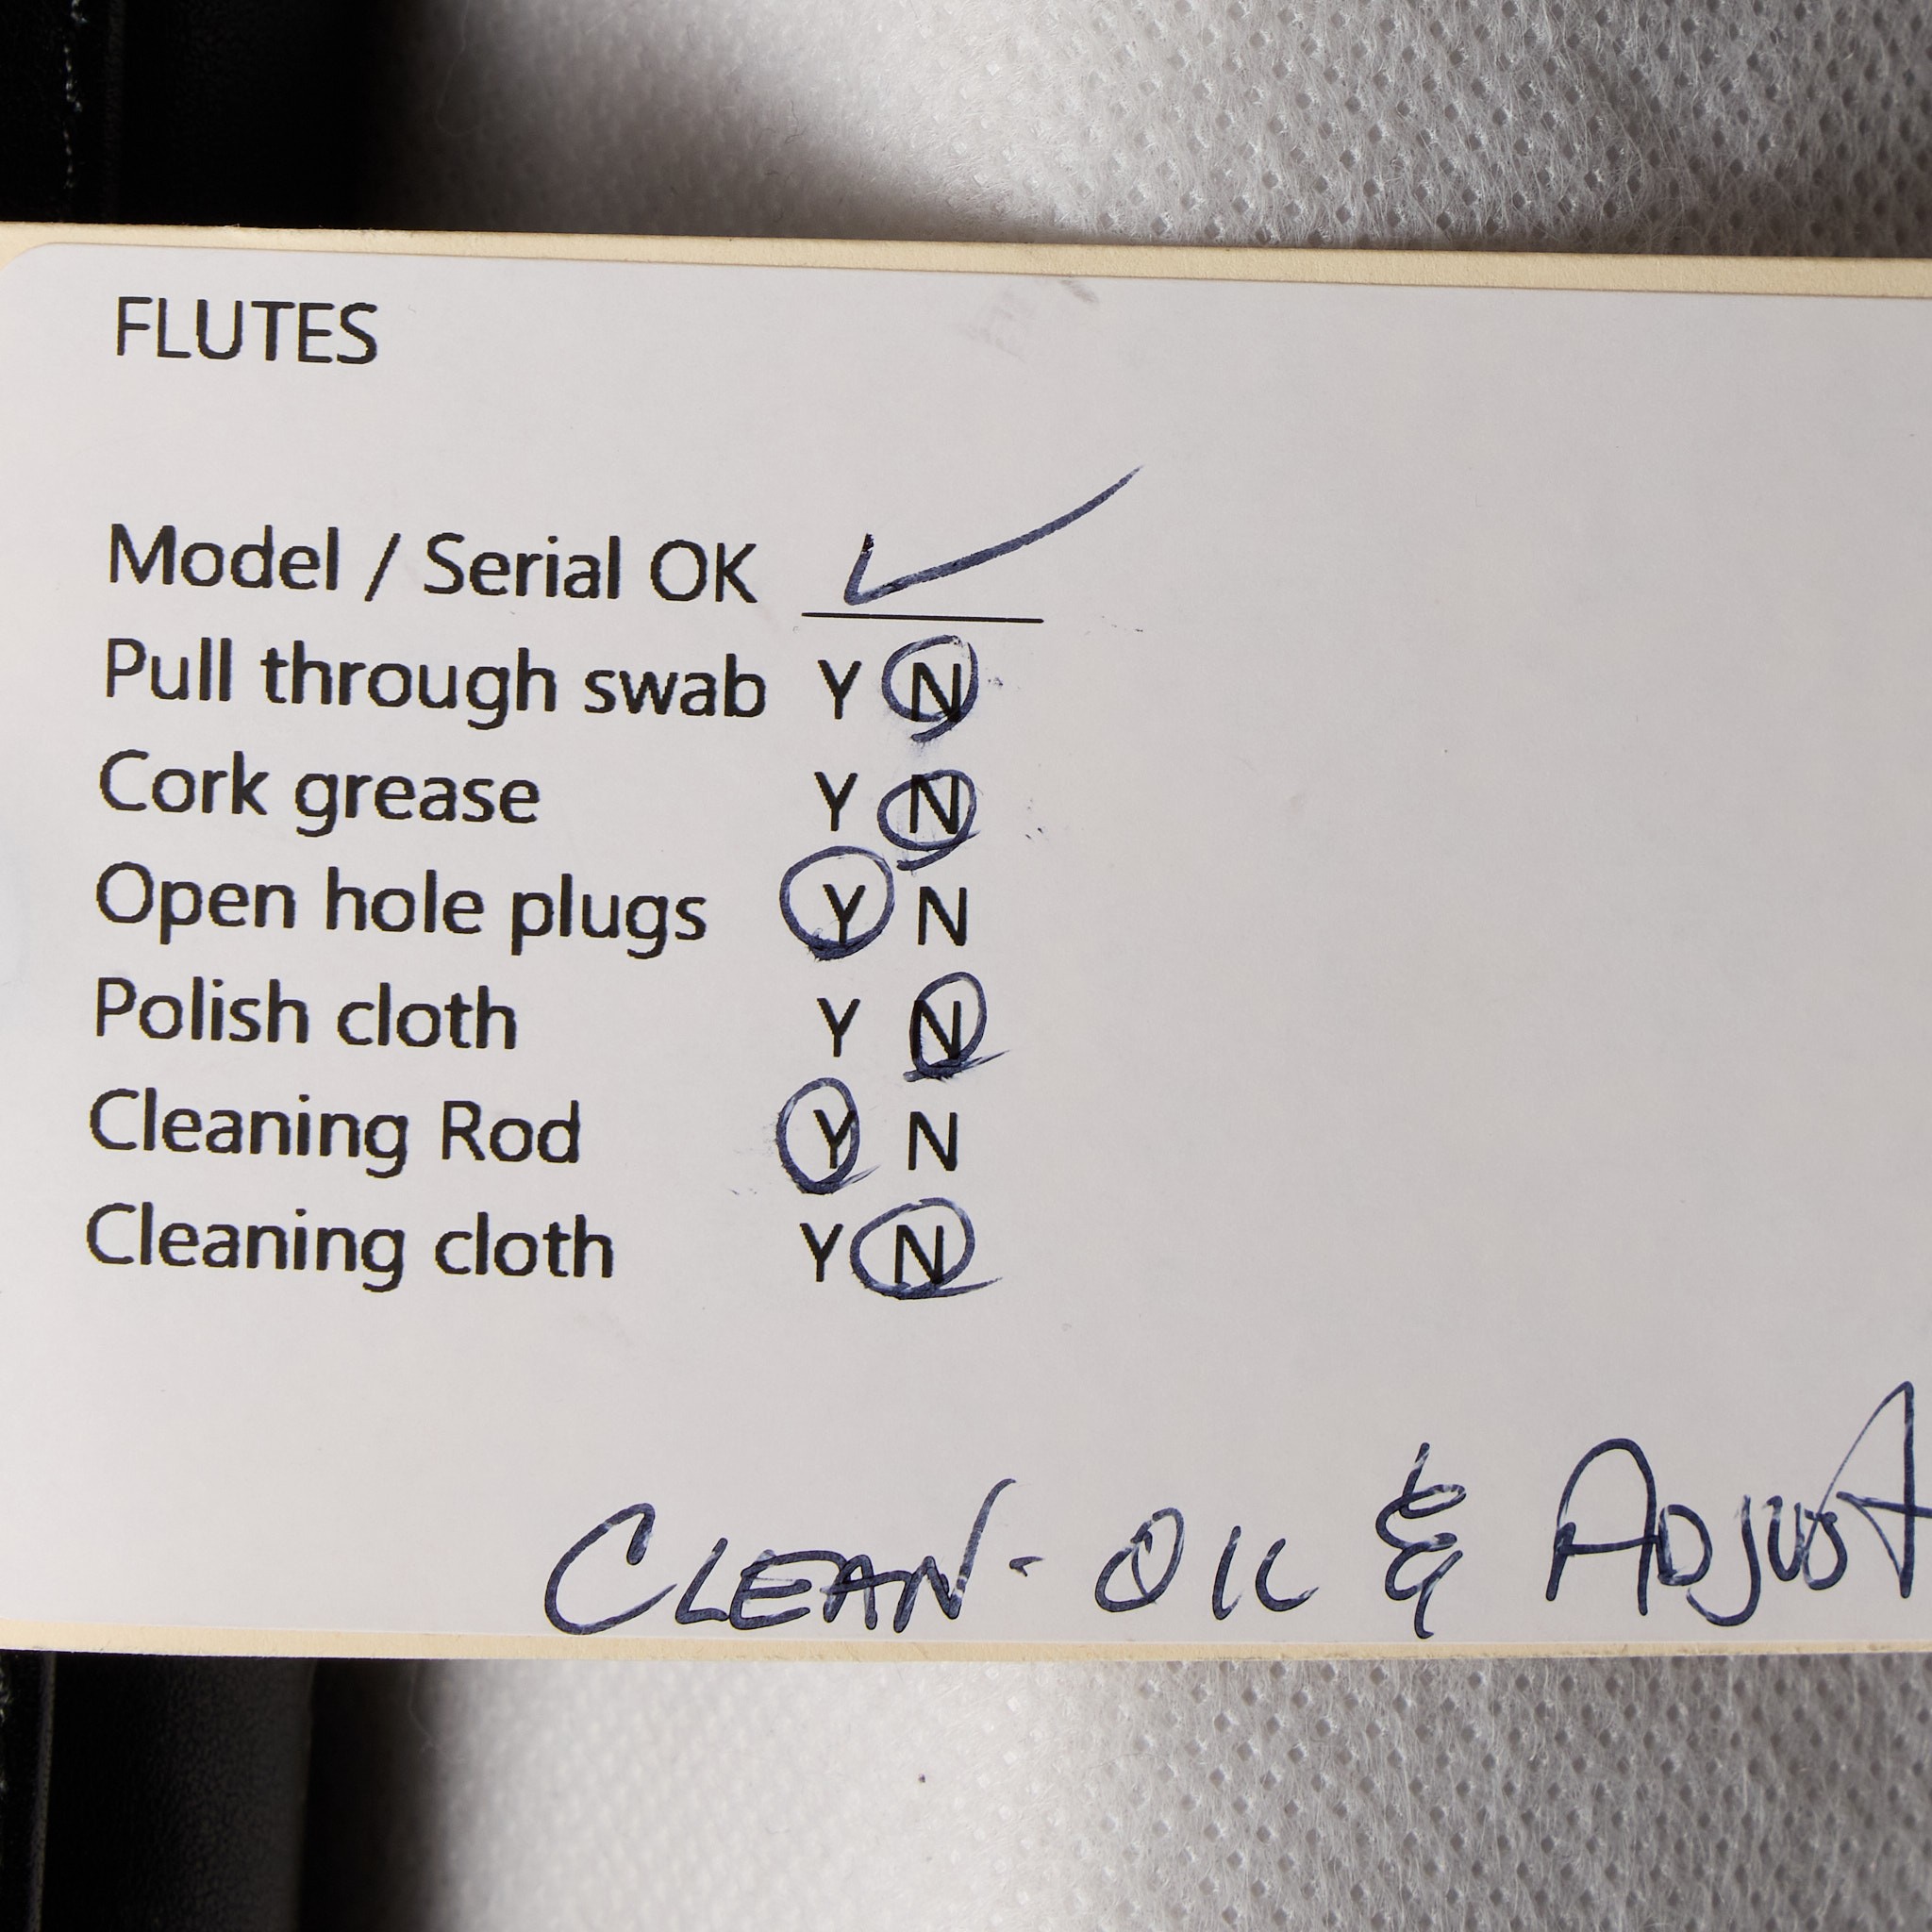 FLUTES
Model / Serial OK ✓
Pull through swab Y N
Cork grease Y N
Open hole plugs Y N
Polish cloth Y N
Cleaning Rod Y N
Cleaning cloth Y N
CLEAN - OIL & ADJUST